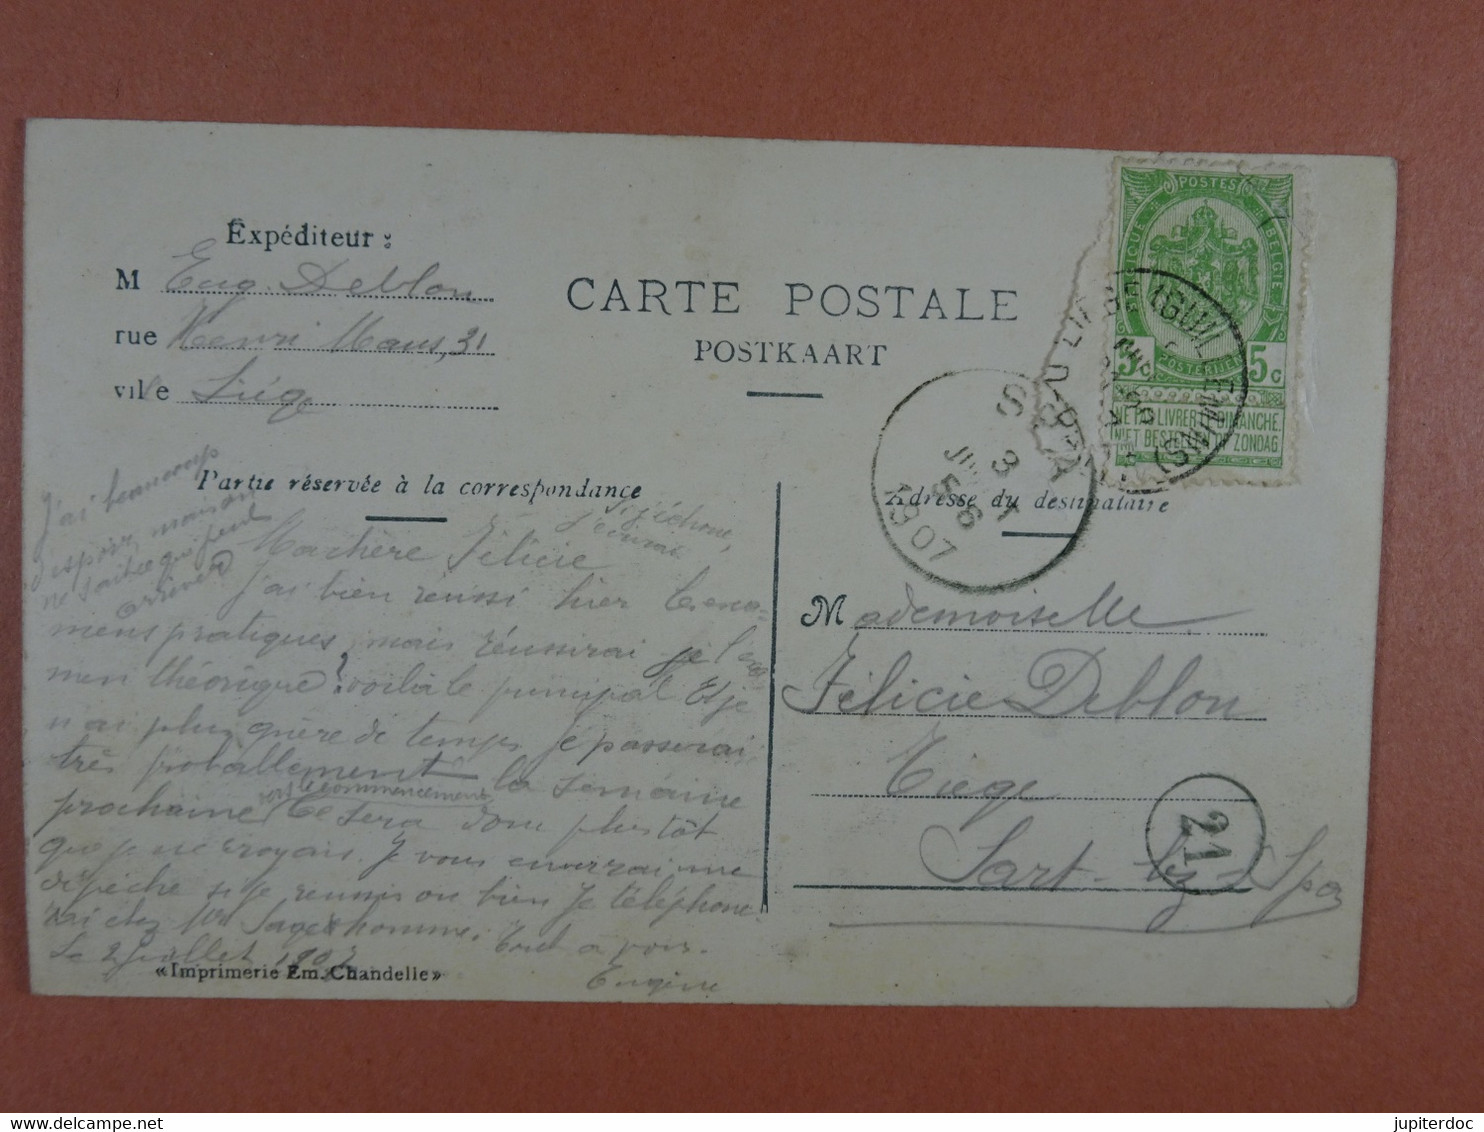 Expéditeur :
M Eug. Deblon
rue Henri Maus, 31
ville Liége
CARTE POSTALE
POSTKAART
POSTES
BELGIQUE
BELGIE
POSTERIJEN
5c 5c
NE PAS LIVRER LE DIMANCHE.
NIET BESTELLEN OP ZONDAG
SPA
3
1907
Partie réservée à la correspondance
Adresse du destinataire
J'ai beaucoup
d'espoir maison
ne sait ce que peut
arriver
si j'échoue,
Ma chère Félicie
j'ai bien réussi hier l'exa-
mens pratiques, mais réussirai je l'exa
men théorique? voilà le principal Et je
n'ai plus guère de temps je passerai
très probablement la semaine
prochaine vers le commencement Ce sera donc plus tôt
que je ne croyais. Je vous enverrai une
dépêche si je réussis ou bien je téléphone-
rai chez Mr Sagehomme. Tout à vous.
Le 2 juillet 1907
Eugène
«Imprimerie Em. Chandelle»
Mademoiselle
Félicie Deblon
Tiège
Sart-lez-Spa
21
jupiterdoc
delcampe.net